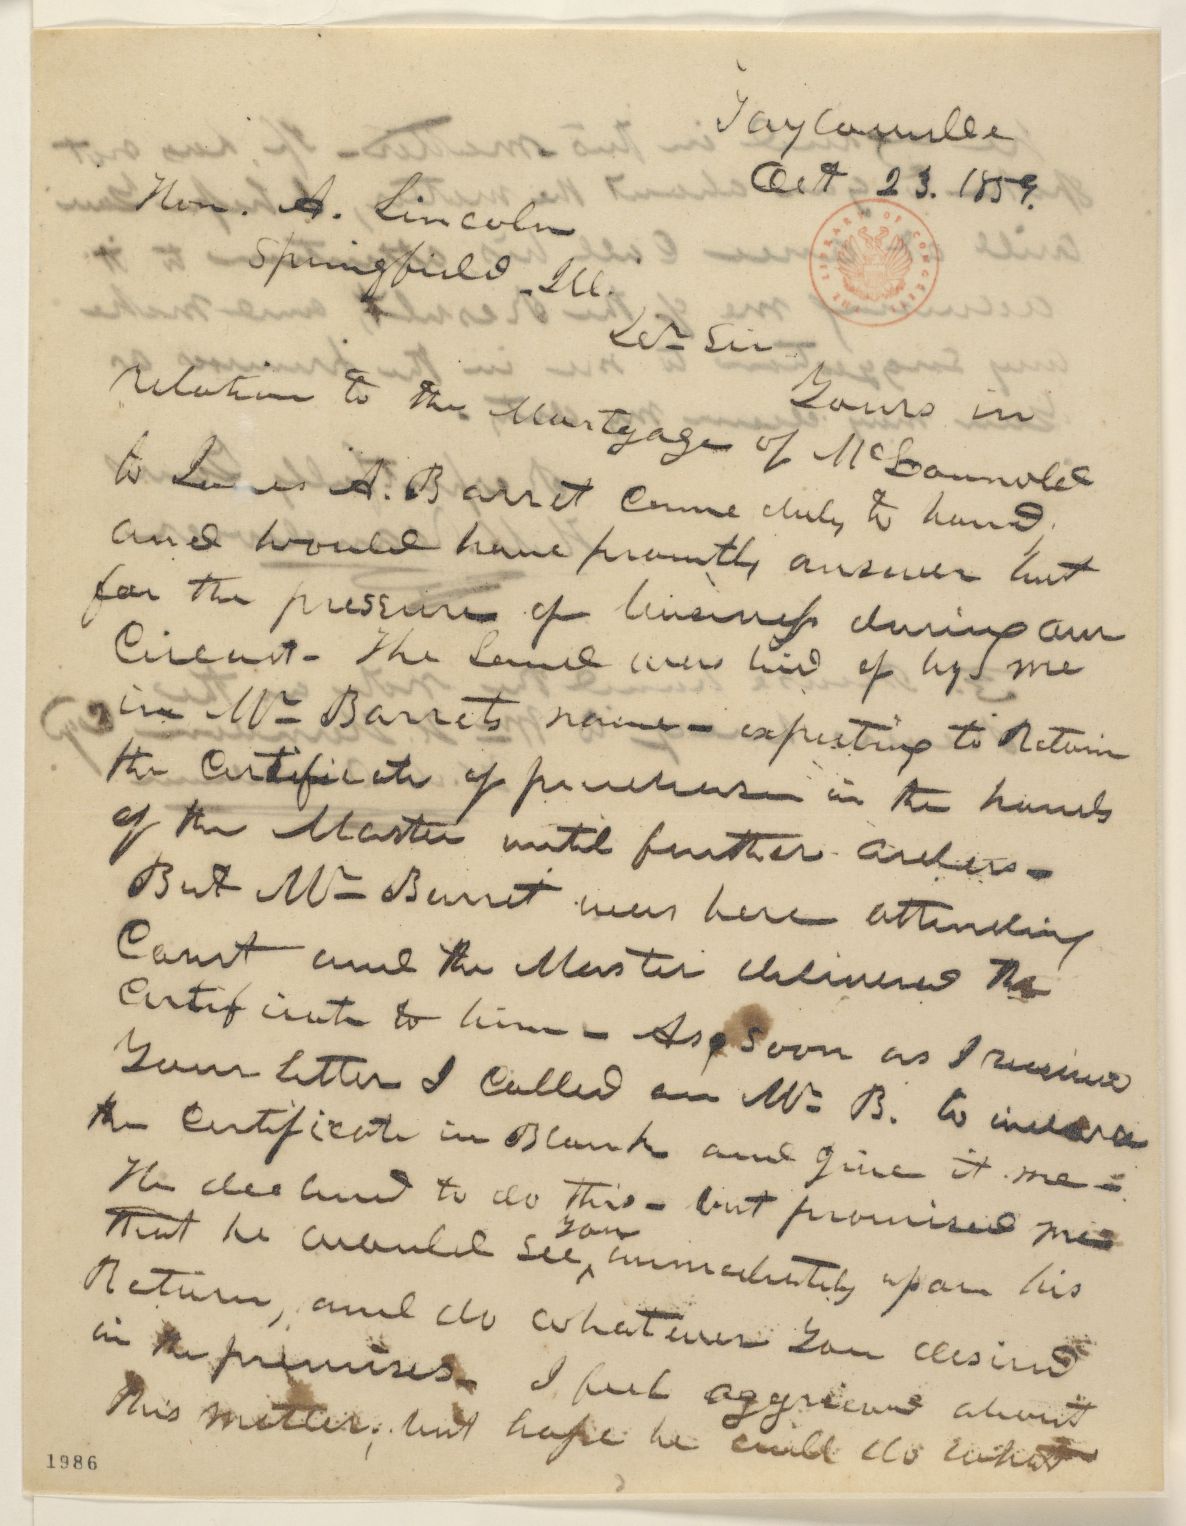 Taylorville
Oct 23. 1859.
Hon. A. Lincoln
Springfield Ill.
Der Sir
Yours in
relation to the Mortgage of McConnold
to James A. Barret came duly to hand,
and would have promtly answer but
for the pressure of business during our
Circuit - The Land was bid of by me
in Mr Barrets name - expecting to Retain
the Certificate of purchase in the hands
of the Master until further orders -
But Mr Barret was here attending
Court and the Master delivered the
Certificate to him - As soon as I received
Your letter I called on Mr B. to indorse
the Certificate in Blank and give it me -
He declined to do this - but promised me
that he would see you immediately upon his
Return, and do whatever You desired
in the premises - I feel aggrieved about
this matter; but hope he will do what
LIBRARY OF CONGRESS
1986